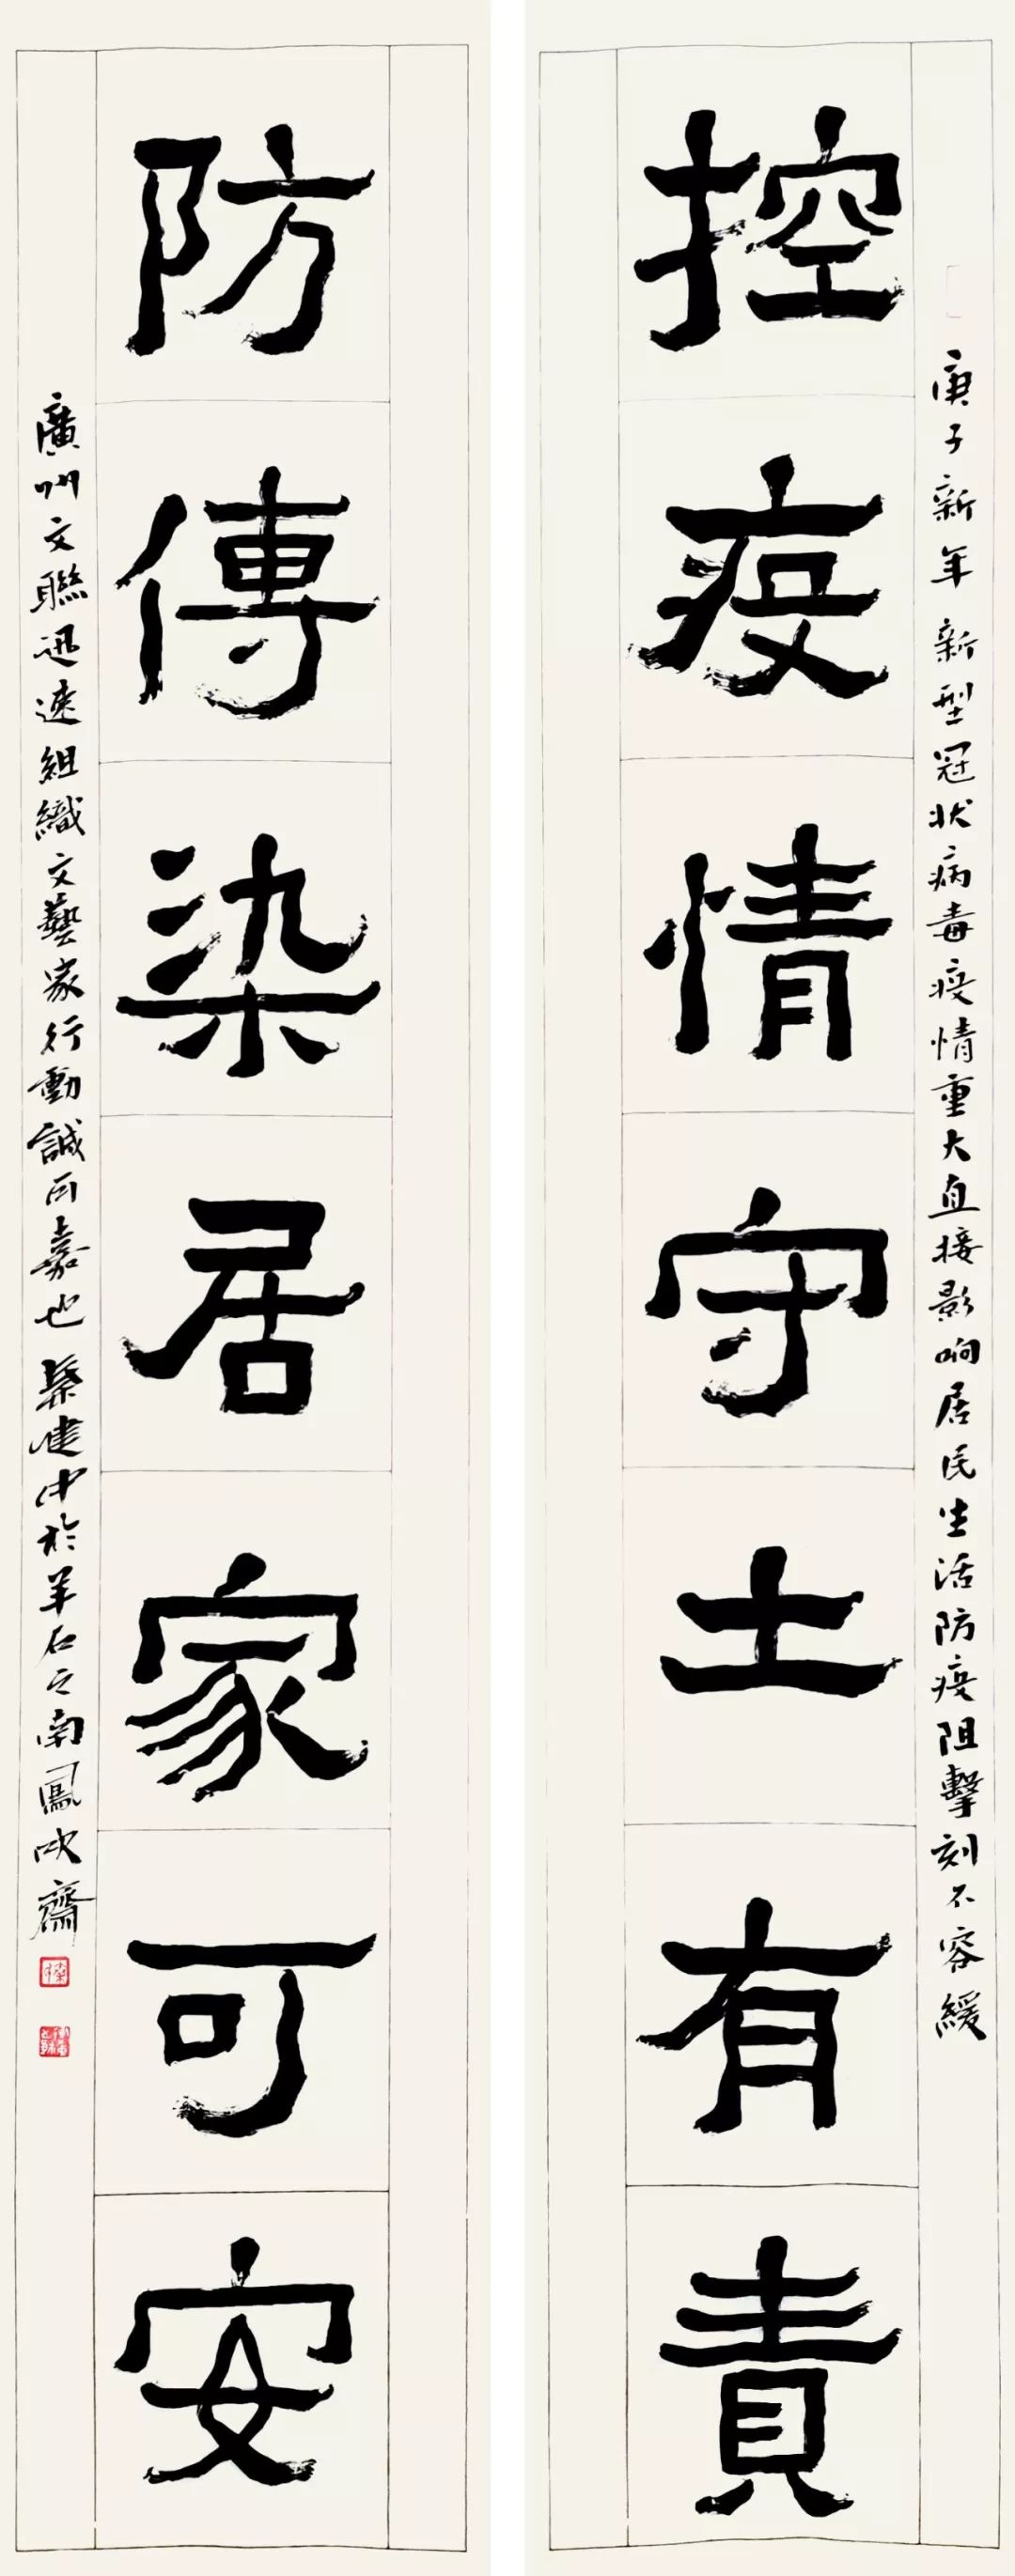 庚子新年新型冠状病毒疫情重大直接影响居民生活防疫阻擊刻不容緩
控疫情守土有責
防傳染居家可安
廣州文聯迅速組織文藝家行動誠可嘉也梁建中於羊石之南鳳吹齋